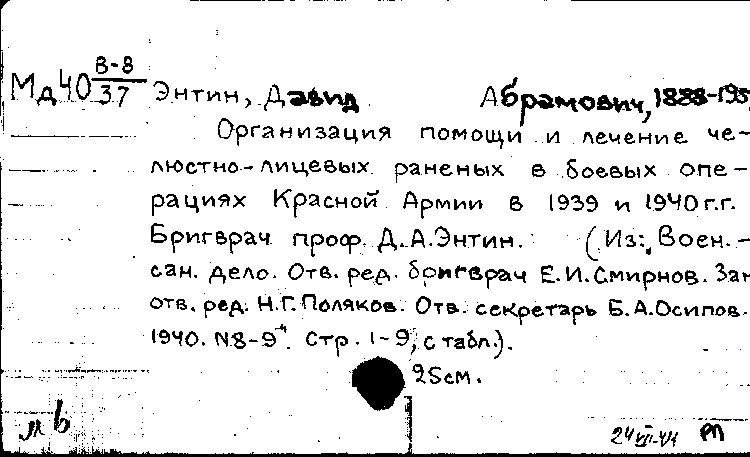 В-8
Мд40 37 Энтин, Давид Абрамович, 1888-195
Организация помощи и лечение че-
люстно-лицевых раненых в боевых опе-
рациях Красной Армии в 1939 и 1940 г.г.
Бригврач проф. Д.А. Энтин. (Из: Воен.-
сан. дело. Отв. ред. бригврач Е.И. Смирнов. Зам
отв. ред. Н.Г. Поляков. Отв. секретарь Б.А. Осипов.
1940. N8-9. Стр. 1-9, с табл.).
25см.
24 VII-44